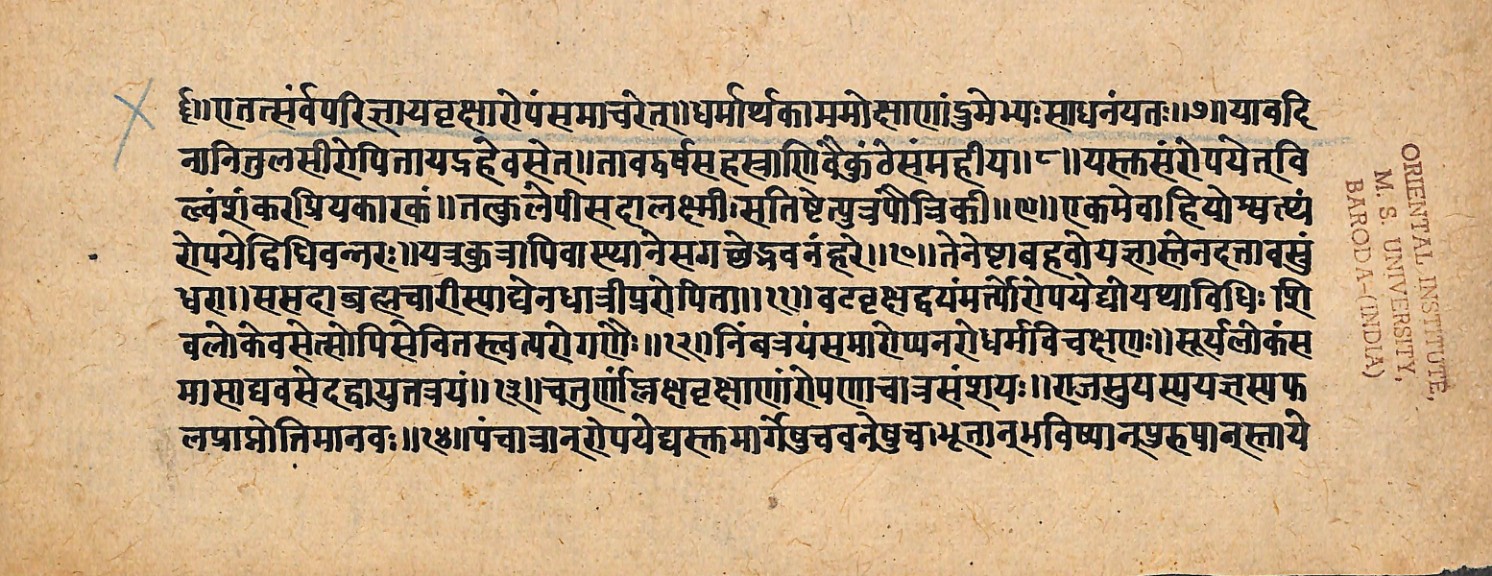 र्द्द॥एतत्सर्वंपरिज्ञायवृक्षारोपंसमाचरेत्॥धर्मार्थकाममोक्षाणांद्रुमेभ्यःसाधनंयतः॥७॥यावदि
नानितुलसीरोपितायद्गृहेवसेत्॥तावद्वर्षसहस्राणिवैकुंठेसंमहीय॥८॥यस्तुसंरोपयेत्बि
ल्वंशंकरप्रियकारकं॥तत्कुलेपीसदालक्ष्मी।सतिष्टेत्पुत्रपौत्रिकी॥९॥एकमेवाहियोश्वत्थं
रोपयेद्विधिवन्तरः॥यत्रकुत्रापिवास्थानेसगच्छेद्भवनंहरे॥१०॥तेनेष्टाबहवोयज्ञास्तेनदत्तावसुं
धरा॥ससदाब्रह्मचारीस्याद्येनधात्रीप्ररोपिता॥११॥वटवृक्षद्वयंमर्त्योरोपयेद्योयथाविधिः शि
वलोकेवसेत्सोपिसेवितस्त्वत्परोगणैः॥१२॥निंबत्रयंसमारोप्यनरोधर्मविचक्षणः॥सूर्यलोकंस
मासाद्यवसेदद्वायुतत्रयं॥१३॥चतुर्णांप्लक्षवृक्षाणांरोपणाचात्रसंशयः॥राजसुयस्ययज्ञस्यफ
लप्राप्नोतिमानवः॥१४॥पंचाम्रान्रोपयेद्यस्तुमार्गेषुचवनेषुच।भूतान्भविष्यान्पुरुषान्स्तार्ये
ORIENTAL INSTITUTE,
M. S. UNIVERSITY,
BARODA-(INDIA)